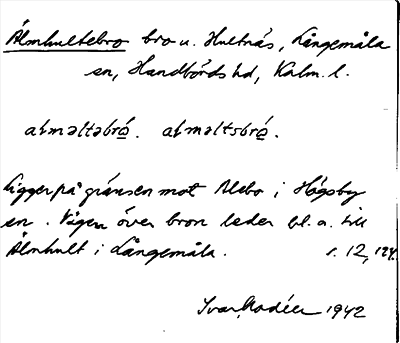 Älmhultebro bro u. Hultnäs, Långemåla
sn, Handbörds hd, Kalm. l.
almaltabrö. almaltsbrö.
Ligger på gränsen mot Älebo i Högsby
sn. Vägen över bron leder bl. a. till
Älmhult i Långemåla. s. 12, 124.
Ivar Modéer 1942